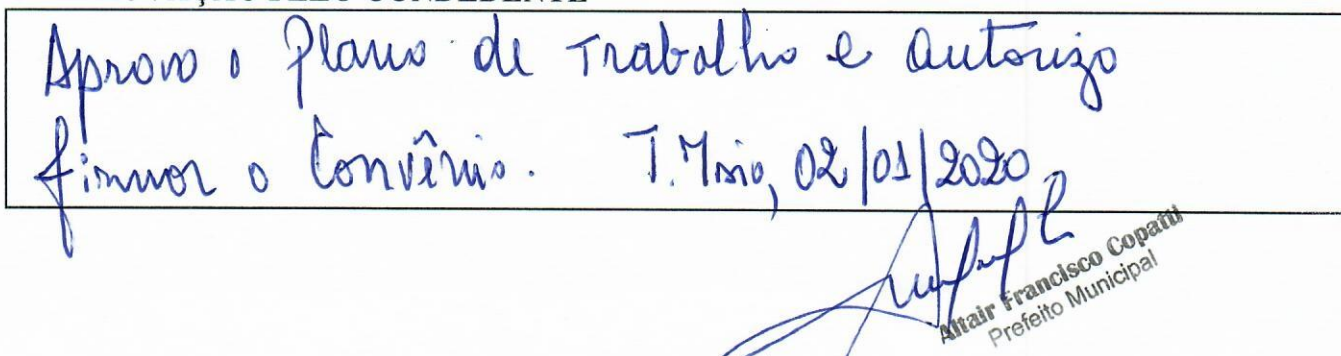 PELO CONDEDENTE
Aprovo o Plano de Trabalho e autorizo
firmar o Convênio. T. Maio, 02/01/2020
Altair Francisco Copatti
Prefeito Municipal